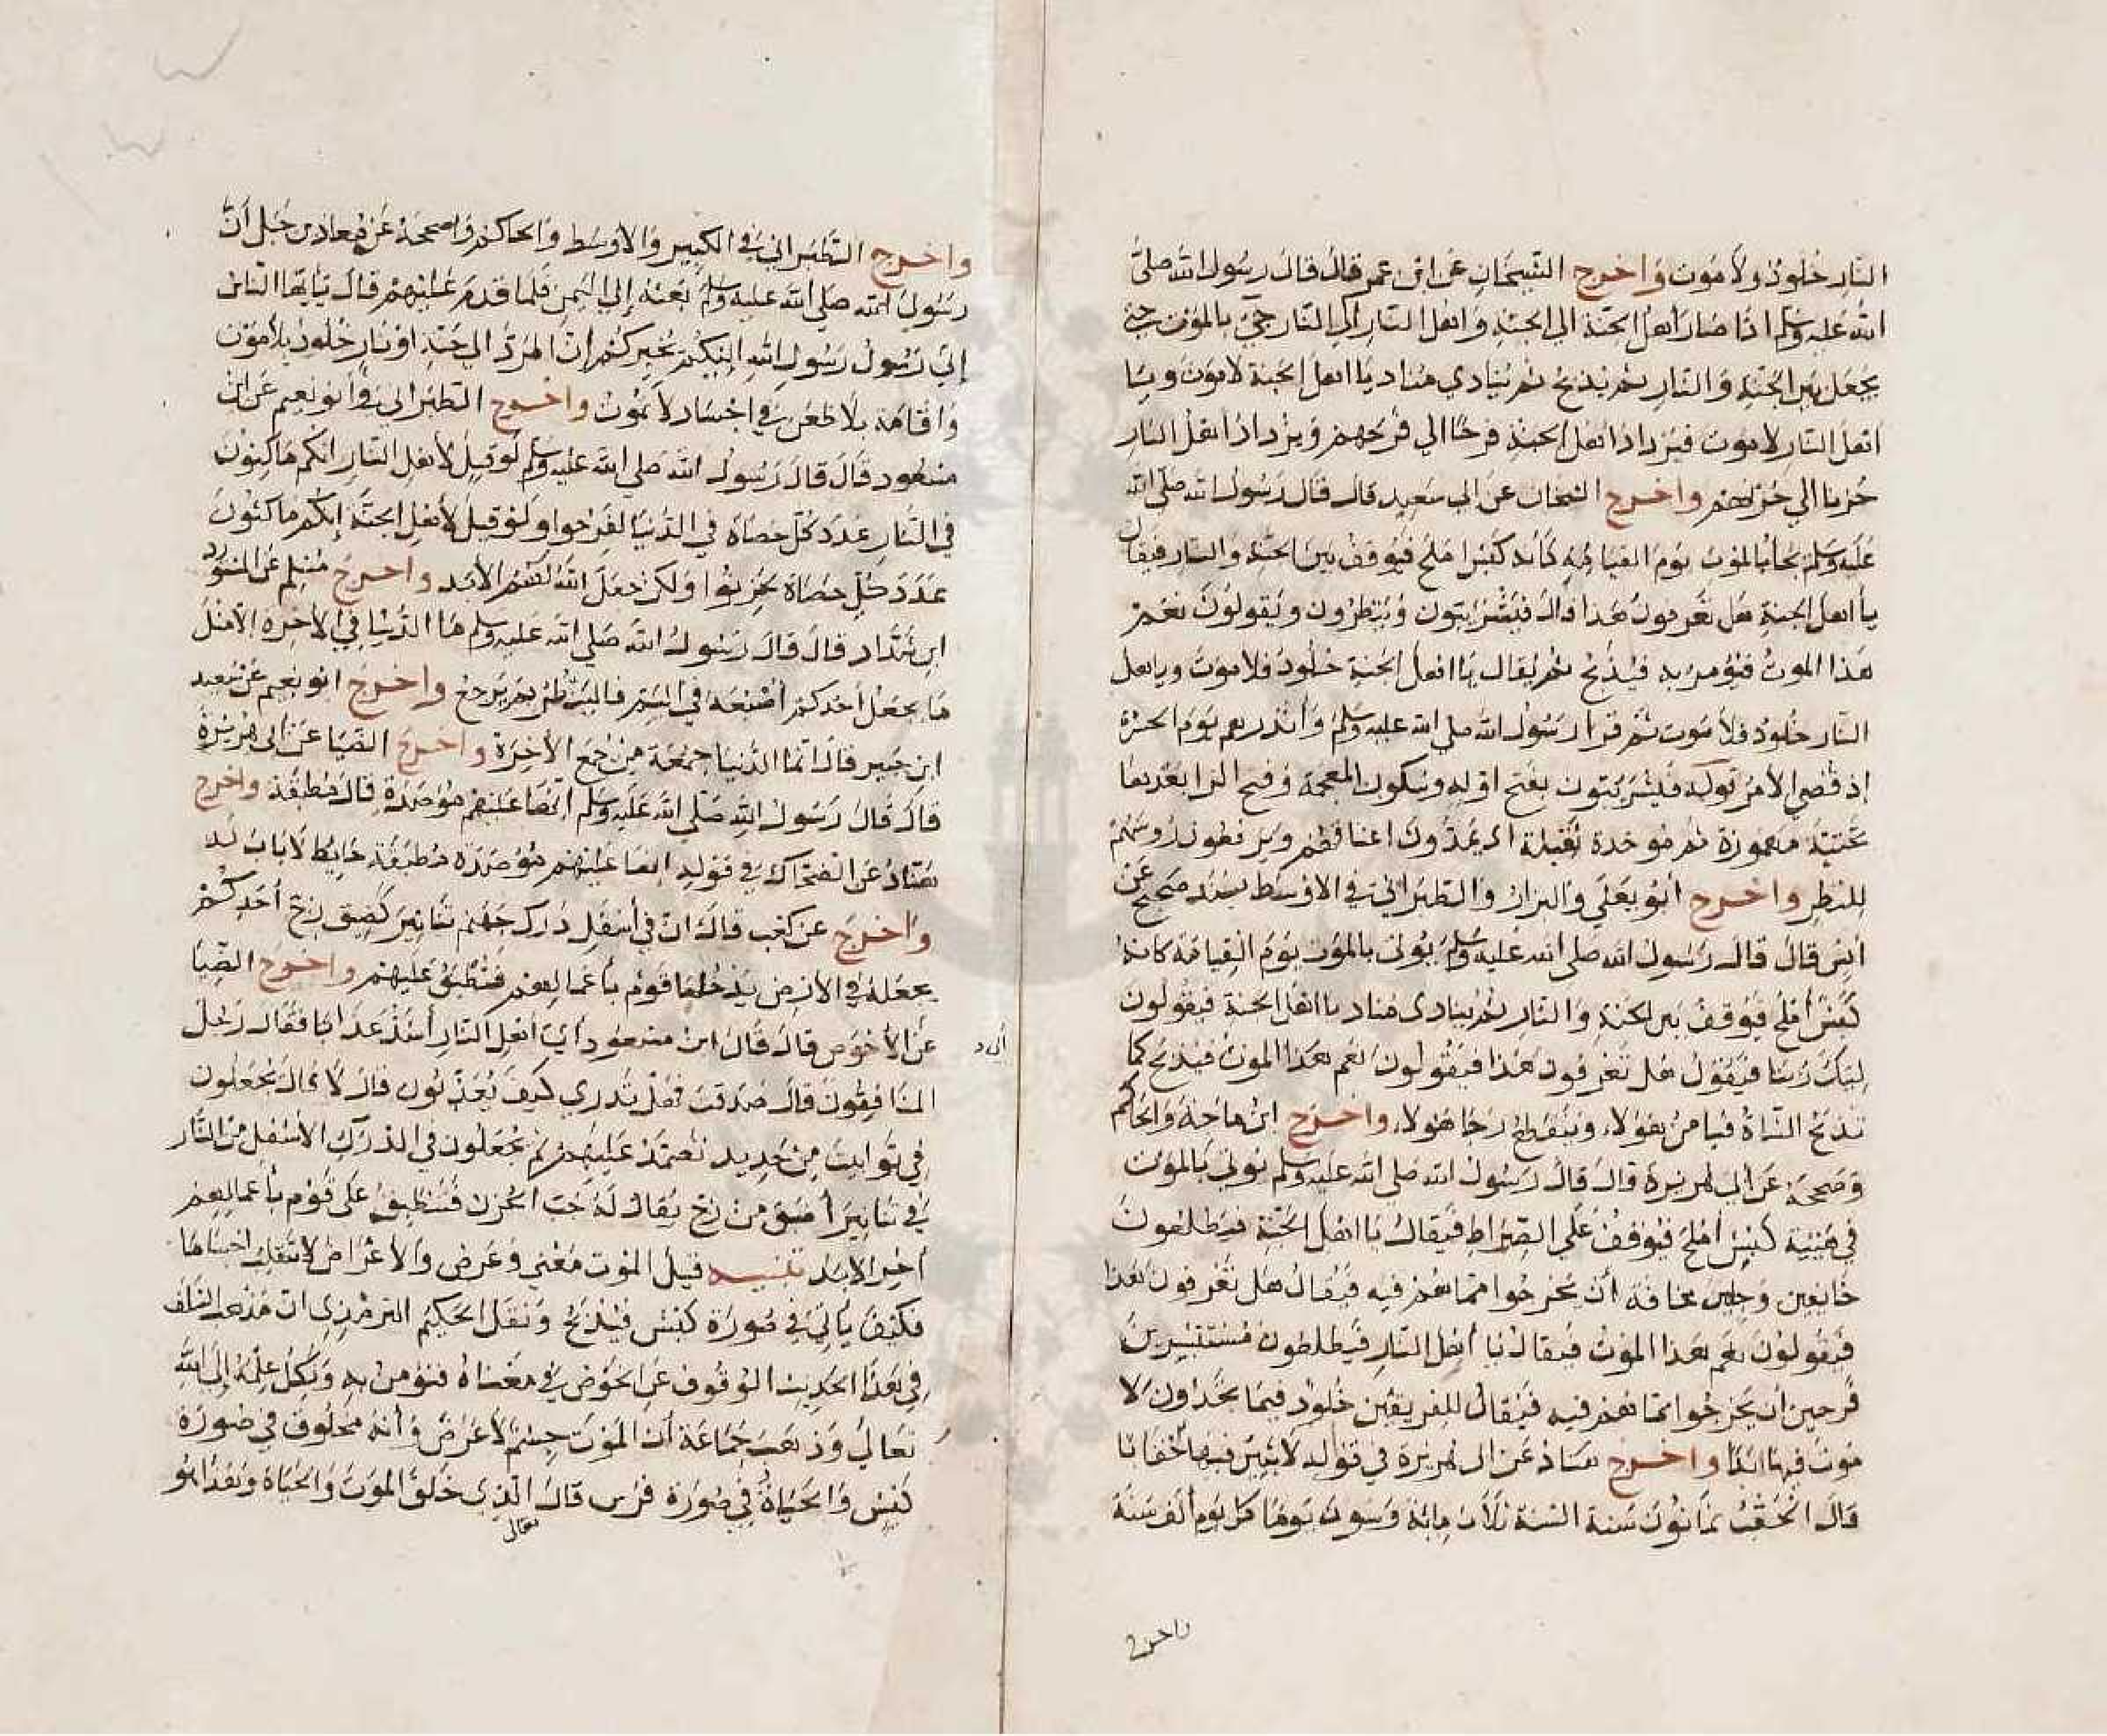 النار خلود ولا موت واخرج الشيخان عن ابن عمر قال قال رسول الله صلى
الله عليه وسلم اذا صار اهل الجنة الي الجنة واهل النار الي النار جيء بالموت حتى
يجعل بين الجنة والنار ثم يذبح ثم ينادي مناد يا اهل الجنة لا موت ويا
اهل النار لا موت فيزداد اهل الجنة فرحا الي فرحهم ويزداد اهل النار
حزنا الي حزنهم واخرج الشيخان عن ابي سعيد قال قال رسول الله صلى الله
عليه وسلم يجاء بالموت يوم القيامة كانه كبش املح فيوقف بين الجنة والنار فيقال
يا اهل الجنة هل تعرفون هذا قال فيشرئبون وينظرون ويقولون نعم
هذا الموت فيؤمر به فيذبح ثم يقال يا اهل الجنة خلود فلا موت ويا اهل
النار خلود فلا موت ثم قرا رسول الله صلى الله عليه وسلم وانذرهم يوم الحسرة
اذ قضي الامر قوله فيشرئبون بفتح اوله وسكون المعجمة وفتح الرا بعدها
تحتية مهموزة ثم موحدة ثقيلة اي يمدون اعناقهم ويرفعون رؤسهم
للنظر واخرج ابو يعلي والبزار والطبراني في الاوسط بسند صحيح عن
انس قال قال رسول الله صلى الله عليه وسلم يؤتى بالموت يوم القيامة كانه
كبش املح فيوقف بين الجنة والنار ثم ينادى مناد يا اهل الجنة فيقولون
لبيك ربنا فيقول هل تعرفون هذا فيقولون نعم هذا الموت فيذبح كما
تذبح الشاة فيامن هؤلاء وينقطع رجا هولاء واخرج ابن ماجة والحاكم
وصححه عن ابي هريرة قال قال رسول الله صلى الله عليه وسلم يؤتى بالموت
في هيئة كبش املح فيوقف على الصراط فيقال يا اهل الجنة فيطلعون
خائفين وجلين مخافة ان يخرجوا مما هم فيه فيقال هل تعرفون هذا
فيقولون نعم هذا الموت فيقال يا اهل النار فيطلعون مستبشرين
فرحين ان يخرجوا مما هم فيه فيقال للفريقين خلود فيما تجدون لا
موت فيها ابدا واخرج هناد عن ابي هريرة في قوله لابثين فيها احقابا
قال الحقب ثمانون سنة السنة ثلاث مائة وستون يوما كل يوم الف سنة
واخرج
واخرج الطبراني في الكبير والاوسط والحاكم وصححه عن معاذ بن جبل ان
رسول الله صلى الله عليه وسلم بعثه الي اليمن فلما قدم عليهم قال يا يها الناس
اني رسول رسول الله اليكم يخبركم ان المرد الي جنة او نار خلود بلا موت
واقامة بلا ظعن في اجساد لا تموت واخرج الطبراني وابو نعيم عن ابن
مسعود قال قال رسول الله صلى الله عليه وسلم لو قيل لاهل النار انكم ماكثون
في النار عدد كل حصاة في الدنيا لفرحوا ولو قيل لاهل الجنة انكم ماكثون
عدد كل حصاة لحزنوا ولكن جعل الله لهم الابد واخرج مسلم عن المستورد
ابن شداد قال قال رسول الله صلى الله عليه وسلم ما الدنيا في الاخرة الا مثل
ما يجعل احدكم اصبعه في اليم فالينظر بم يرجع واخرج ابو نعيم عن سعيد
ابن جبير قال انما الدنيا جمعة من جمع الاخرة واخرج الضيا عن ابي هريرة
قال قال رسول الله صلى الله عليه وسلم انها عليهم مؤصدة قال مطبقة واخرج
هناد عن الضحاك في قوله انها عليهم مؤصدة مطبقة حايط لا باب له
واخرج عن كعب قال ان في اسفل درك جهنم تنانير كضيق زج احدكم
يجعله في الارض يدخلها قوم باعمالهم فتطبق عليهم واخرج الضيا
عن الاخوص قال قال ابن مسعود اي اهل النار اشد عذابا فقال رجل
المنافقون قال صدقت فهل تدري كيف يعذبون قال لا قال يجعلون
في توابيت من حديد تصمد عليهم ثم يجعلون في الدرك الاسفل من النار
في تنانير اضيق من زج يقال له جب الحزن فتطبق على قوم باعمالهم
اخر الابد تنبيه قيل الموت معني وعرض والاعراض لا تنقلب اجساما
فكيف ياتي في صورة كبش فيذبح ونقل الحكيم الترمذي ان مذهب السلف
في هذا الحديث الوقوف عن الخوض في معناه فنؤمن به ونكل علمه الى الله
تعالي وذهب جماعة ان الموت جسم لا عرض وانه مخلوق في صورة
كبش والحياة في صورة فرس قال الذي خلق الموت والحياة وهذا هو
تعالى